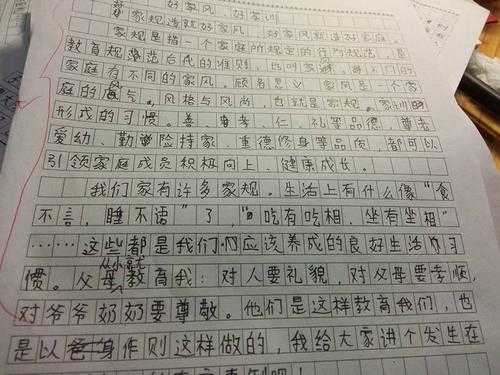 好家风 好家训
家规造就好家风 好家风塑造好家庭
家规是指一个家庭所规定的行为规范,是
教育规范后代的准则,也叫家
家庭有不同的家风。顾名思义 家风是一个家
庭的风气、风格与风尚,也就是家规、家训所
形成的习惯。善、孝、仁、礼等品德,尊老
爱幼、勤俭持家、重德修身等品质,都可以
引领家庭成员积极向上、健康成长。
我们家有许多家规。生活上有什么像“食
不言,睡不语”了,“吃有吃相,坐有坐相”
……这些都是我们应该养成的良好生活习
惯。父母从小就教育我:对人要礼貌,对父母要孝顺,
对爷爷奶奶要尊敬。他们是这样教育我们,也
是以身作则这样做的,我给大家讲个发生在